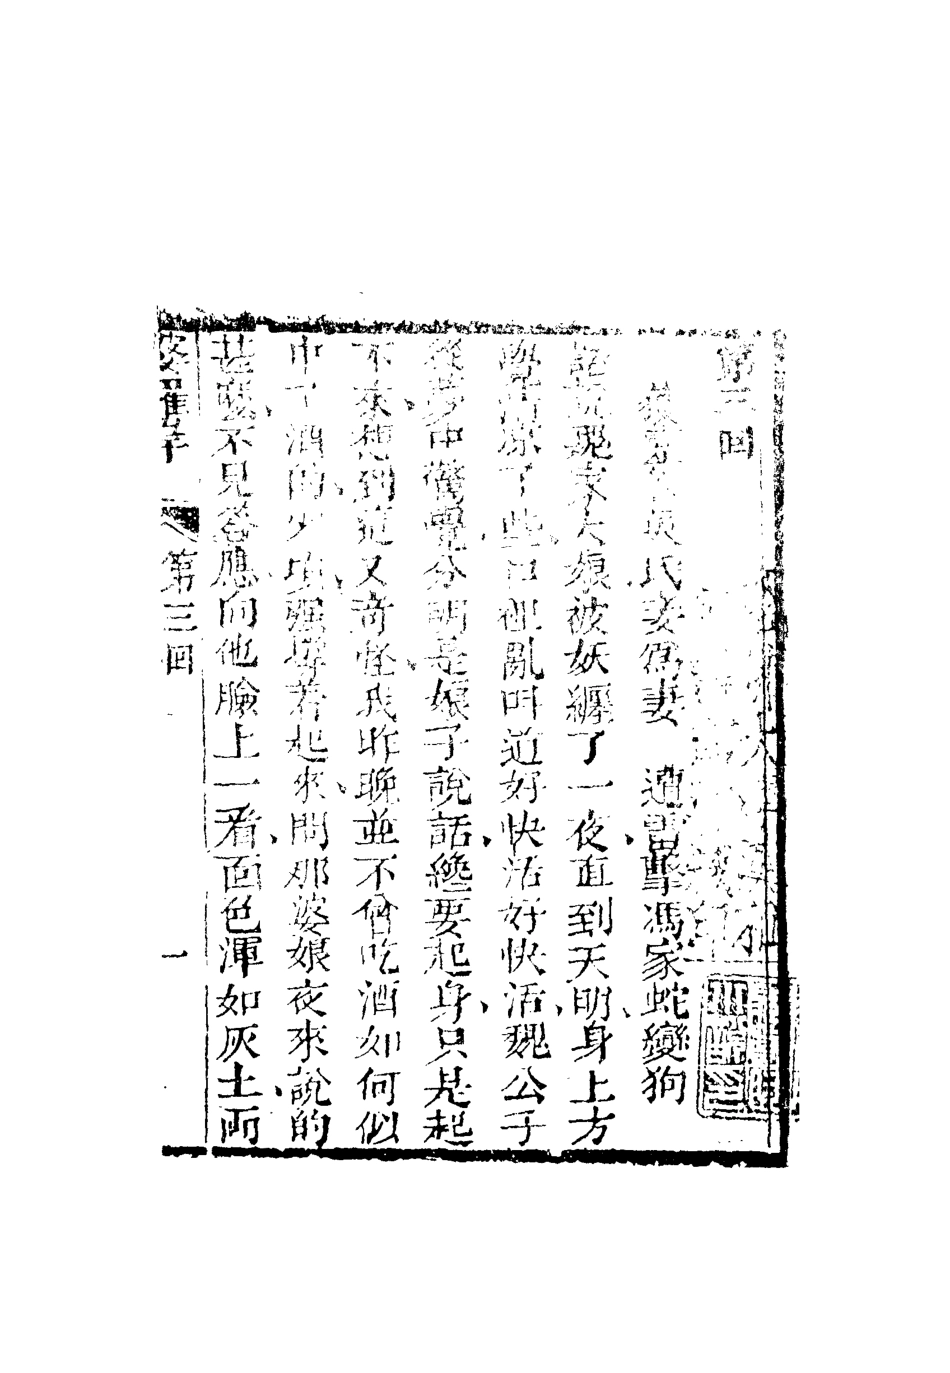 第三回
氏妻為妻　遭雷擊馮家蛇變狗
話說魏家大娘被妖纏了一夜直到天明身上方
涼了些口裡亂叫道好快活好快活魏公子
從夢中驚覺分明是娘子說話纔要起身只是起
不來想到這又奇怪我昨晚並不曾吃酒如何似
中了酒的少頃强掙着起來問那婆娘夜來說的
甚麼不見答應向他臉上一看面色渾如灰土両
第三回
一